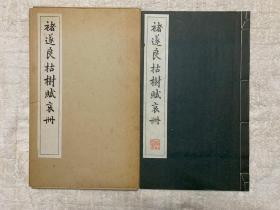 褚遂良枯樹賦哀冊
褚遂良枯樹賦哀冊